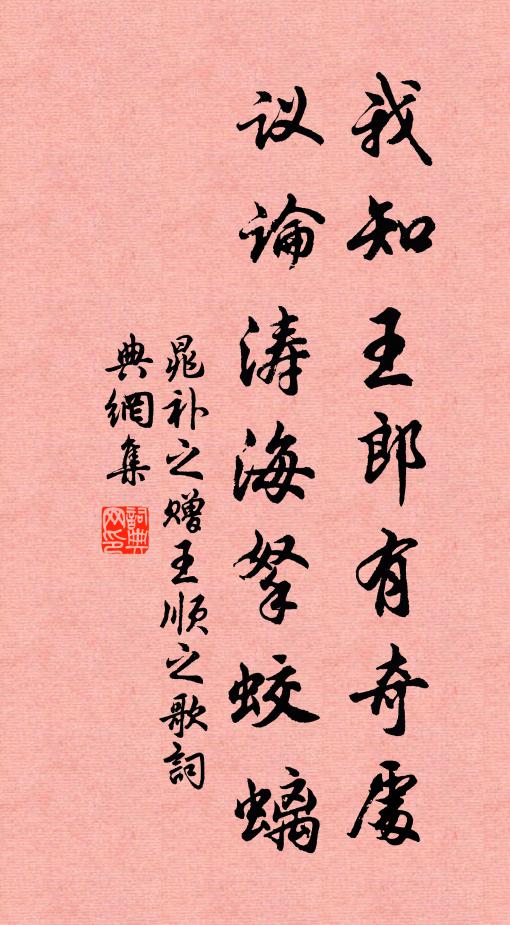 我知王郎有奇處
议論涛海拏蛟螭
晁补之赠王顺之歌詞
典網集
詞典网印